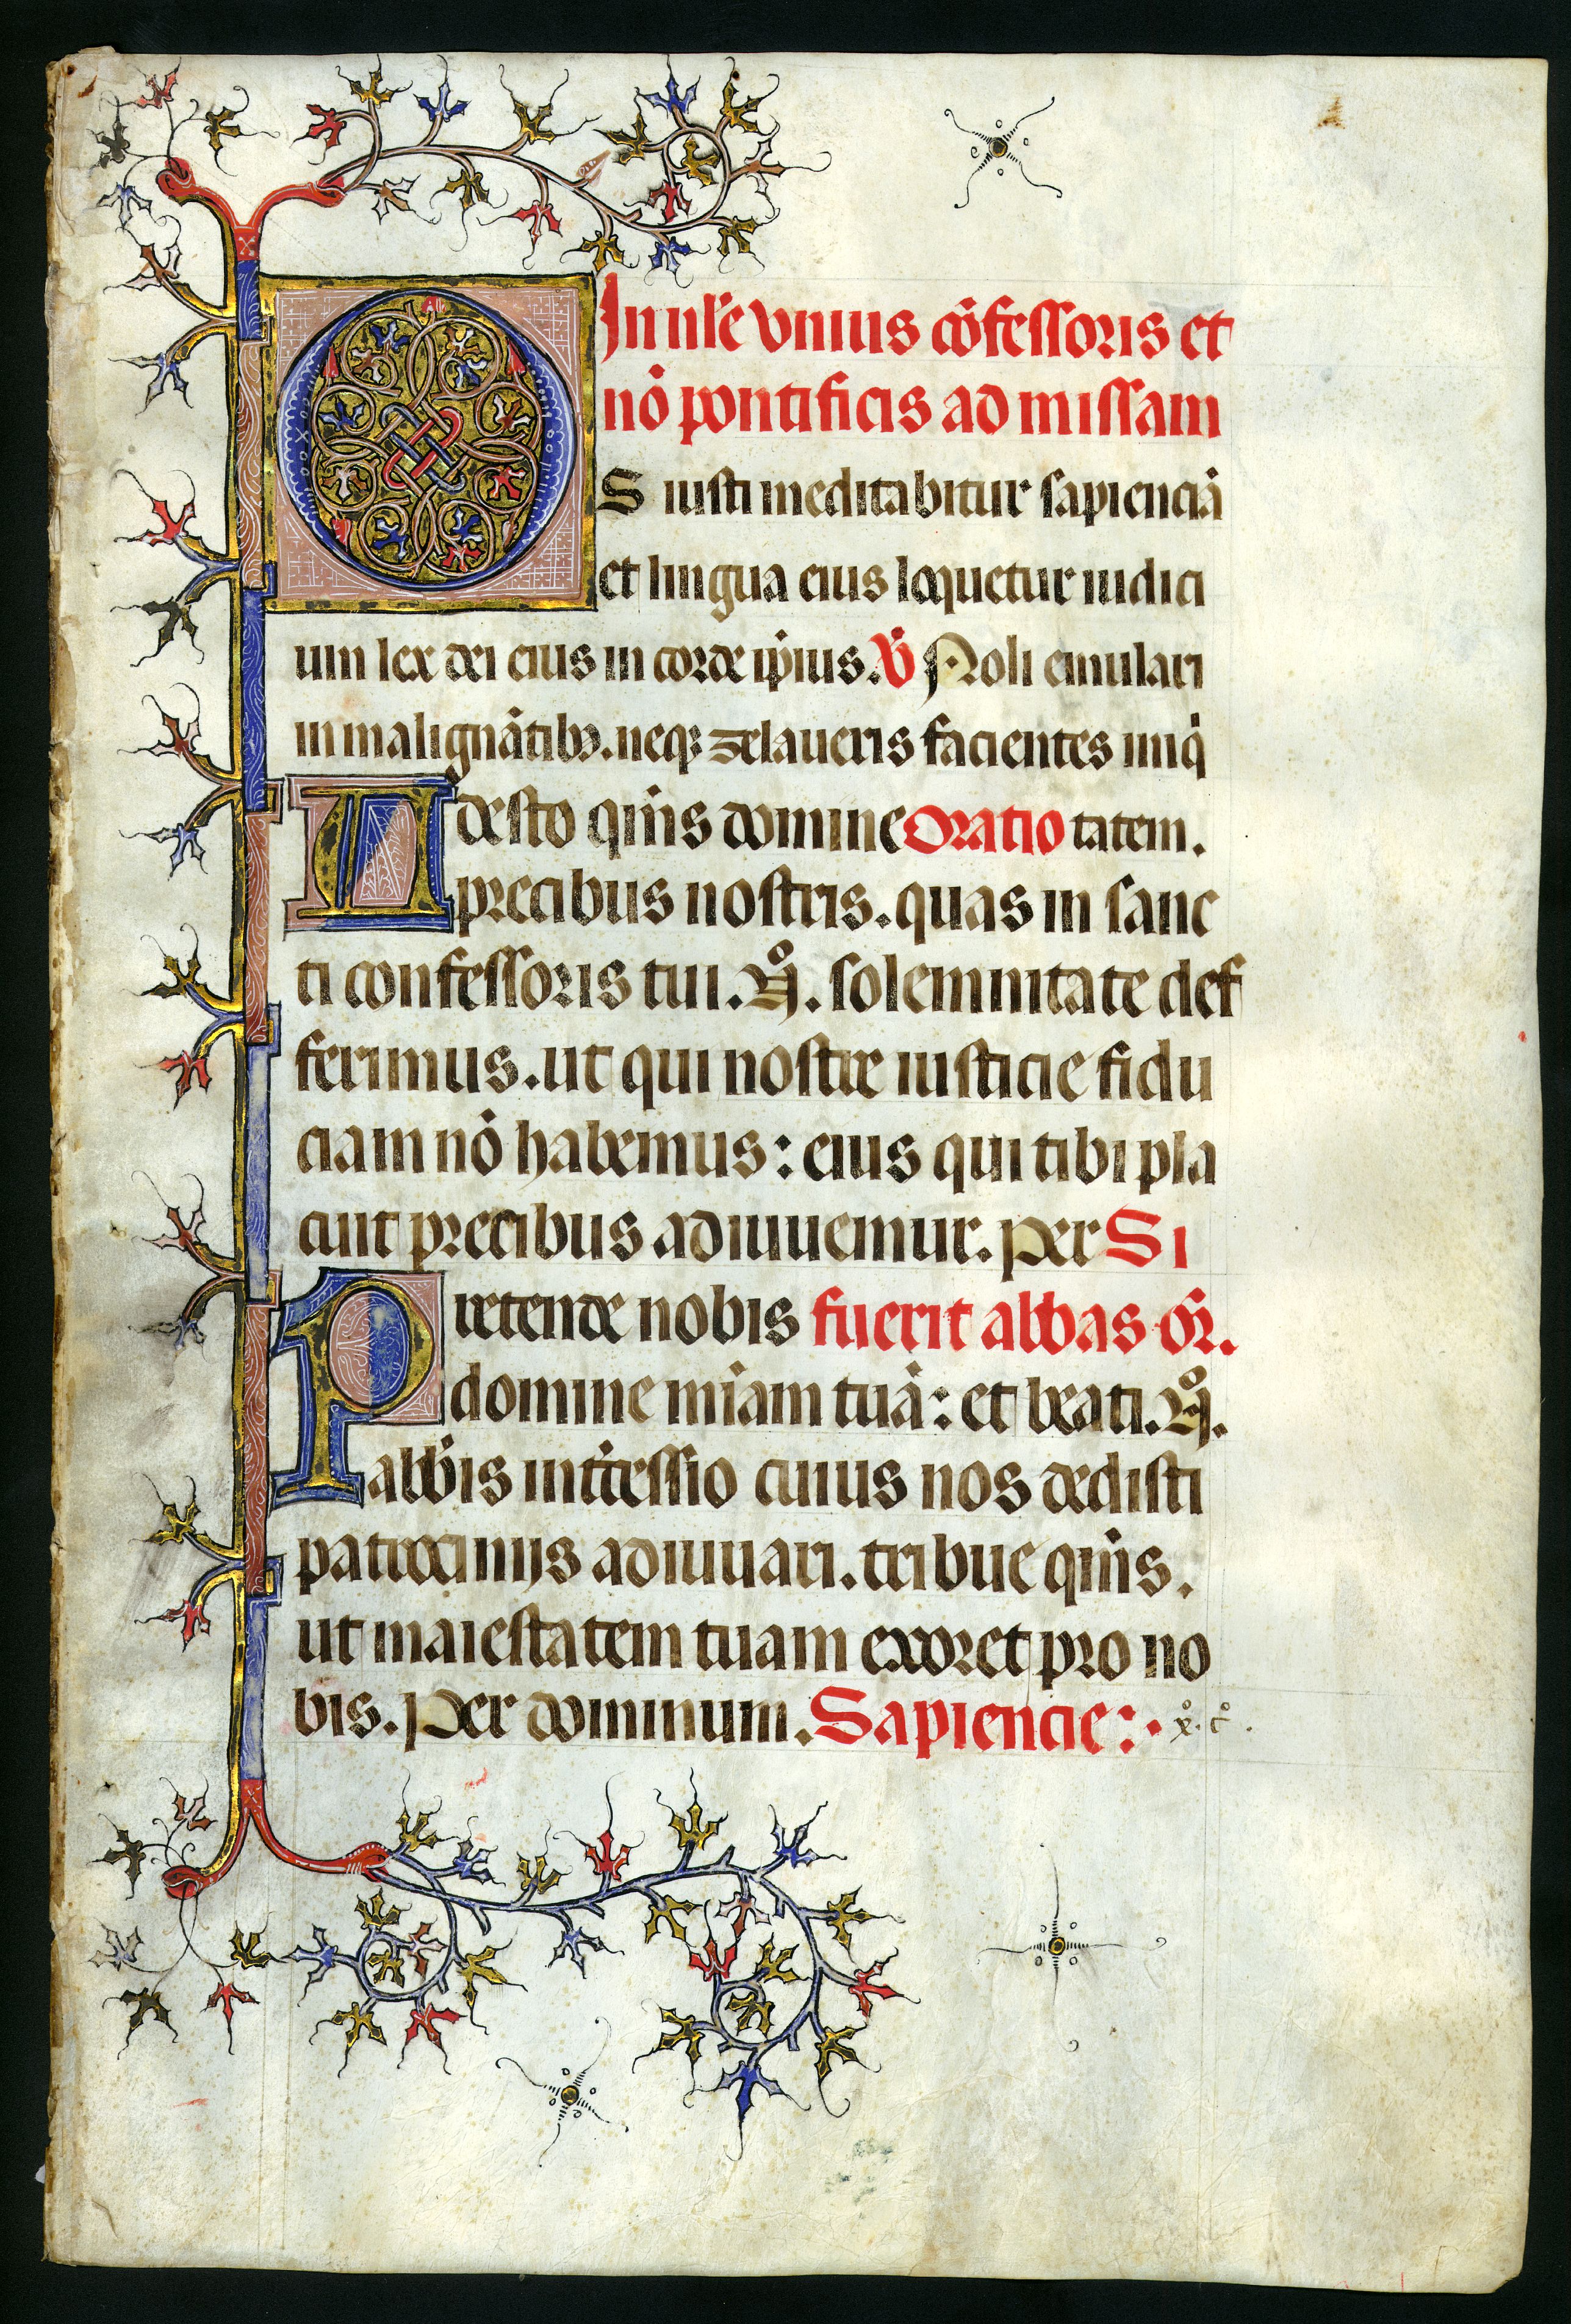 In nĺe vnius cōfessoris et
nō pontificis ad missam
OS iusti meditabitur sapienciā
et lingua eius loquetur iudici
um lex dei eius in corde ip̄ius. V̄ Noli emulari
in malignātibꝫ. neqꝫ zelaueris facientes iniq̄
Adesto qm̄s domine Oratio tatem.
precibus nostris. quas in sanc
ti confessoris tui. N̊. solemnitate def
ferimus. ut qui nostre iusticie fidu
ciam nō habemus: eius qui tibi pla
cuit precibus adiuuemur. Per Si
Pretende nobis fuerit abbas or̄.
domine mīam tuā: et beati. N̊.
abb̄is int̄cessio cuius nos dedisti
patrocinijs adiuuari. tribue qm̄s.
ut maiestatem tuam exoret pro no
bis. Per dominum. Sapiencie:· x̊. c̊.